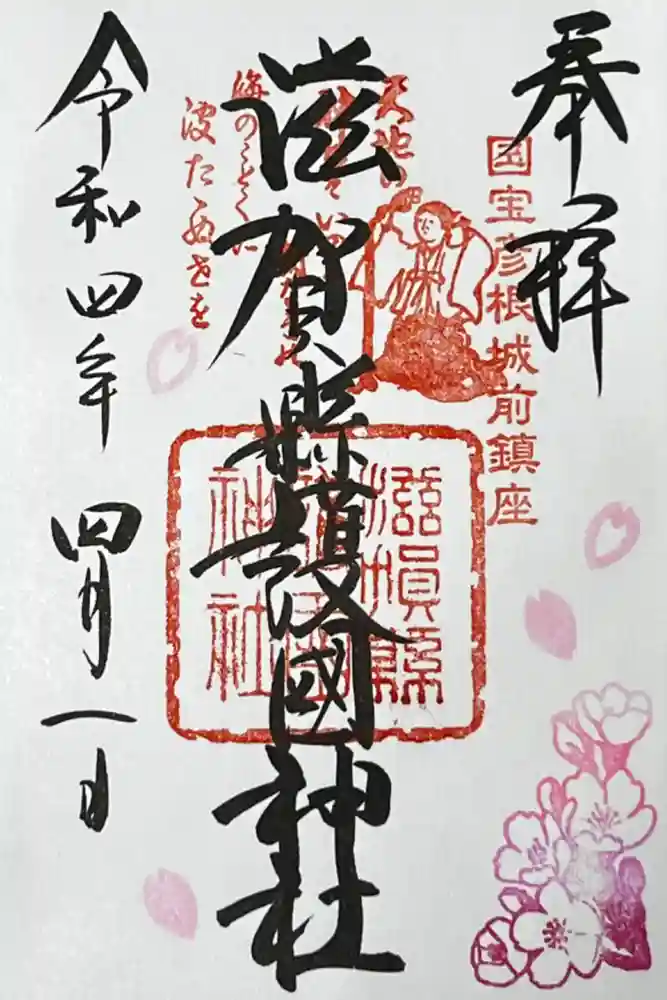 奉拝
国宝彦根城前鎮座
天地の
海のことくに
波たゝぬ世を
滋賀縣護國神社
滋賀縣
護國
神社
令和四年 四月一日